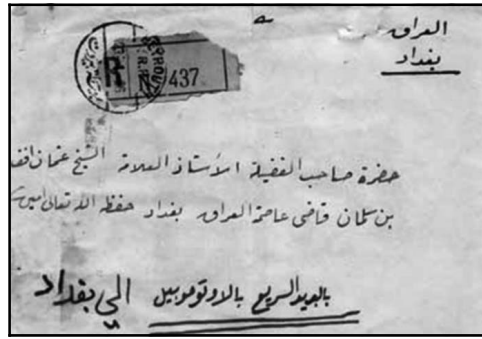 العراق
بغداد
BEYROUTH
437
حضرة صاحب الفضيلة الاستاذ العلامة الشيخ عثمان افند
بن سلمان قاضي عاصمة العراق بغداد حفظه الله تعالى امين
بالبريد السريع بالاوتوموبيل الي بغداد